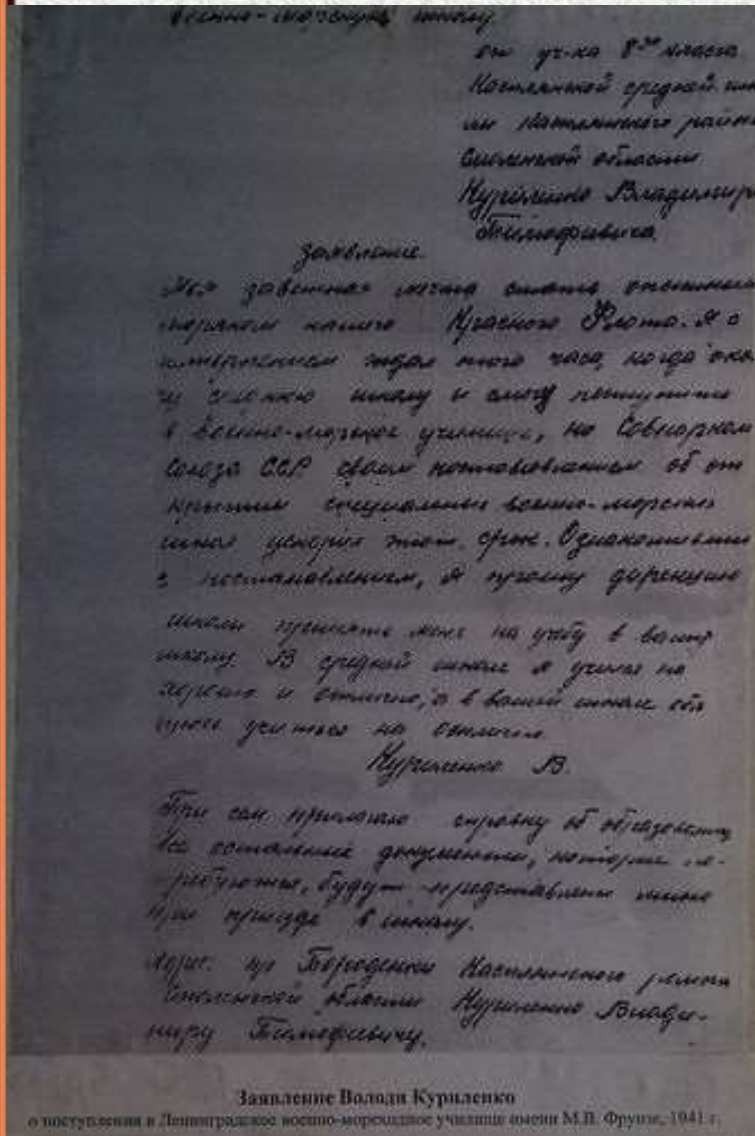 военно-морскую школу
от уч-ка 8го класса
Касплянской средней шко
лы Касплянского района
Смоленской области
Куриленко Владимира
Тимофевича.
заявление.
Моя заветная мечта стать отличным
моряком нашего Красного Флота. Я с
нетерпением ждал того часа, когда окон
чу среднюю школу и смогу поступить
в Военно-морское училище, но Совнарком
Союза ССР своим постановлением об от
крытии специальных военно-морских
школ ускорил этот срок. Ознакомившись
с постановлением, я прошу дирекцию
школы принять меня на учёбу в вашу
школу. В средней школе я учился на
хорошо и отлично, а в вашей школе обя
зуюсь учиться на отлично.
Куриленко В.
При сем прилагаю справку об образовании
все остальные документы, которые по-
требуются, будут представлены мною
при приезде в школу.
Адрес: п/о Бороденки Касплянского района
Смоленской области Куриленко Влади-
миру Тимофевичу.
Заявление Володи Куриленко
о поступлении в Ленинградское военно-мореходное училище имени М.В. Фрунзе, 1941 г.